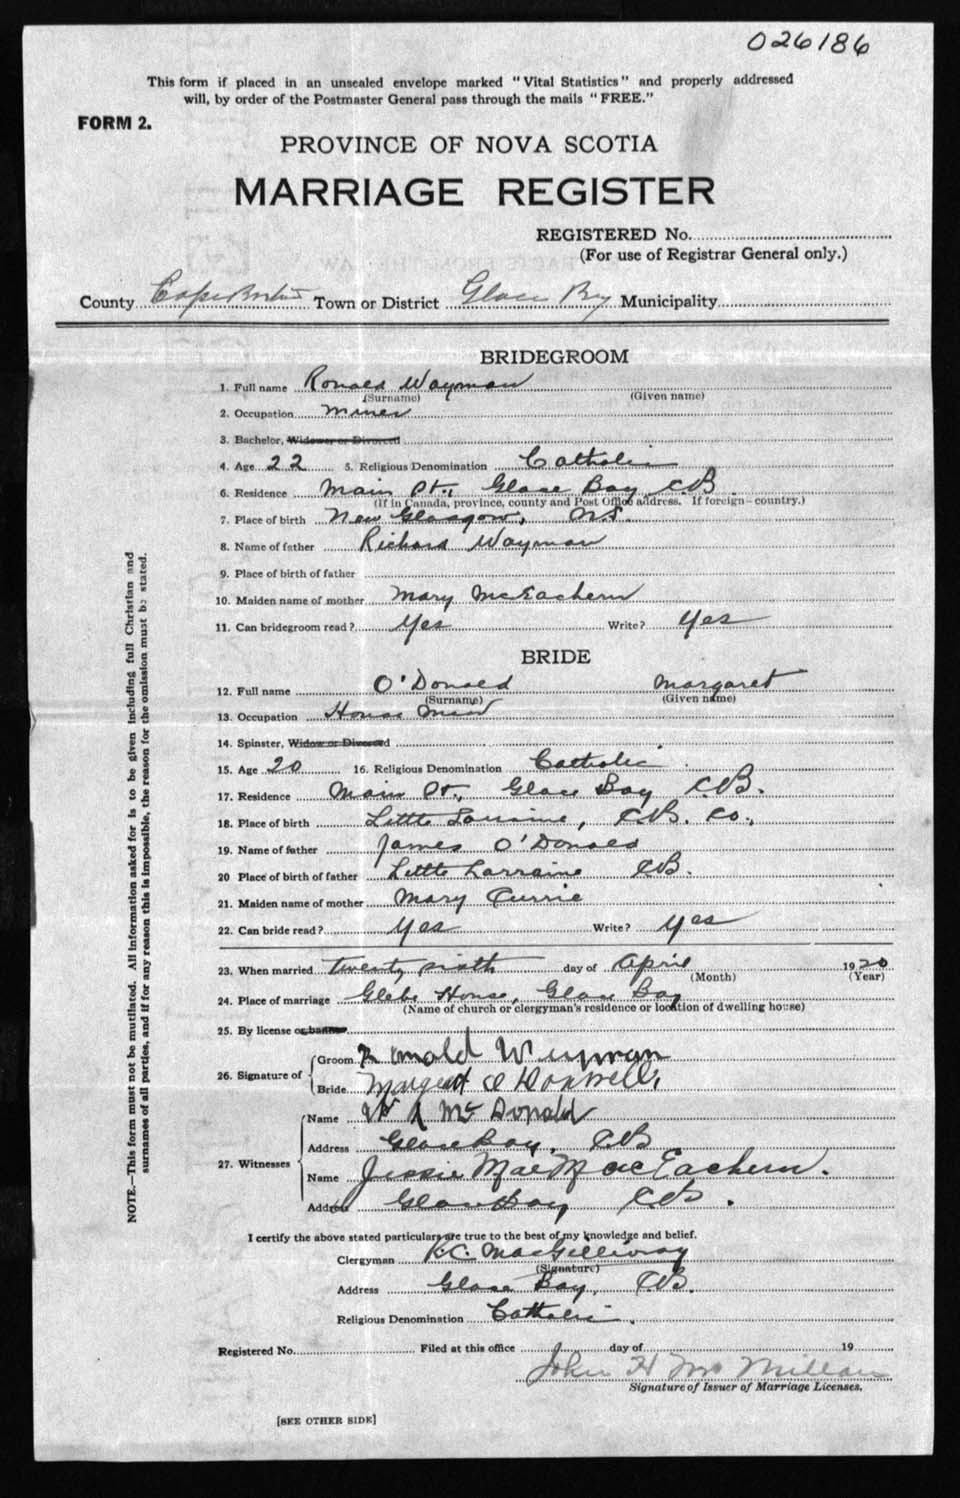 026186
This form if placed in an unsealed envelope marked "Vital Statistics" and properly addressed
will, by order of the Postmaster General pass through the mails "FREE."
FORM 2.
PROVINCE OF NOVA SCOTIA
MARRIAGE REGISTER
REGISTERED No.
(For use of Registrar General only.)
County Cape Breton Town or District Glace Bay Municipality
BRIDEGROOM
1. Full name Ronald Wayman
(Surname) (Given name)
2. Occupation Miner
3. Bachelor, Widower or Divorced
4. Age 22 5. Religious Denomination Catholic
6. Residence Main St., Glace Bay C.B.
(If in Canada, province, county and Post Office address. If foreign—country.)
7. Place of birth New Glasgow, N.S.
8. Name of father Richard Wayman
9. Place of birth of father
10. Maiden name of mother Mary McEachern
11. Can bridegroom read? Yes Write? Yes
BRIDE
12. Full name O'Donald Margaret
(Surname) (Given name)
13. Occupation House Maid
14. Spinster, Widow or Divorced
15. Age 20 16. Religious Denomination Catholic
17. Residence Main St., Glace Bay C.B.
18. Place of birth Little Lorraine, C.B. Co.,
19. Name of father James O'Donald
20 Place of birth of father Little Larraine C.B.
21. Maiden name of mother Mary Currie
22. Can bride read? Yes Write? Yes
23. When married twenty sixth day of April 1920
(Month) (Year)
24. Place of marriage Glebe House, Glace Bay
(Name of church or clergyman's residence or location of dwelling house)
25. By license or banns
26. Signature of
Groom Ronald
Bride Margaret
27. Witnesses
Name McDonald
Address Glace Bay, C.B.
Name Jessie Mae MacEachern.
Address Glace Bay C.B.
I certify the above stated particulars are true to the best of my knowledge and belief.
Clergyman R.C. MacGillivray
(Signature)
Address Glace Bay, C.B.
Religious Denomination Catholic.
Registered No. Filed at this office day of 19
John H McMillan
Signature of Issuer of Marriage Licenses.
[SEE OTHER SIDE]
NOTE.—This form must not be mutilated. All information asked for is to be given including full Christian and
surnames of all parties, and if for any reason this is impossible, the reason for the omission must be stated.